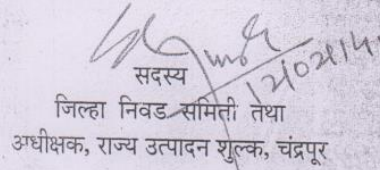 सदस्य
जिल्हा निवड समिती तथा
अधीक्षक, राज्य उत्पादन शुल्क, चंद्रपूर